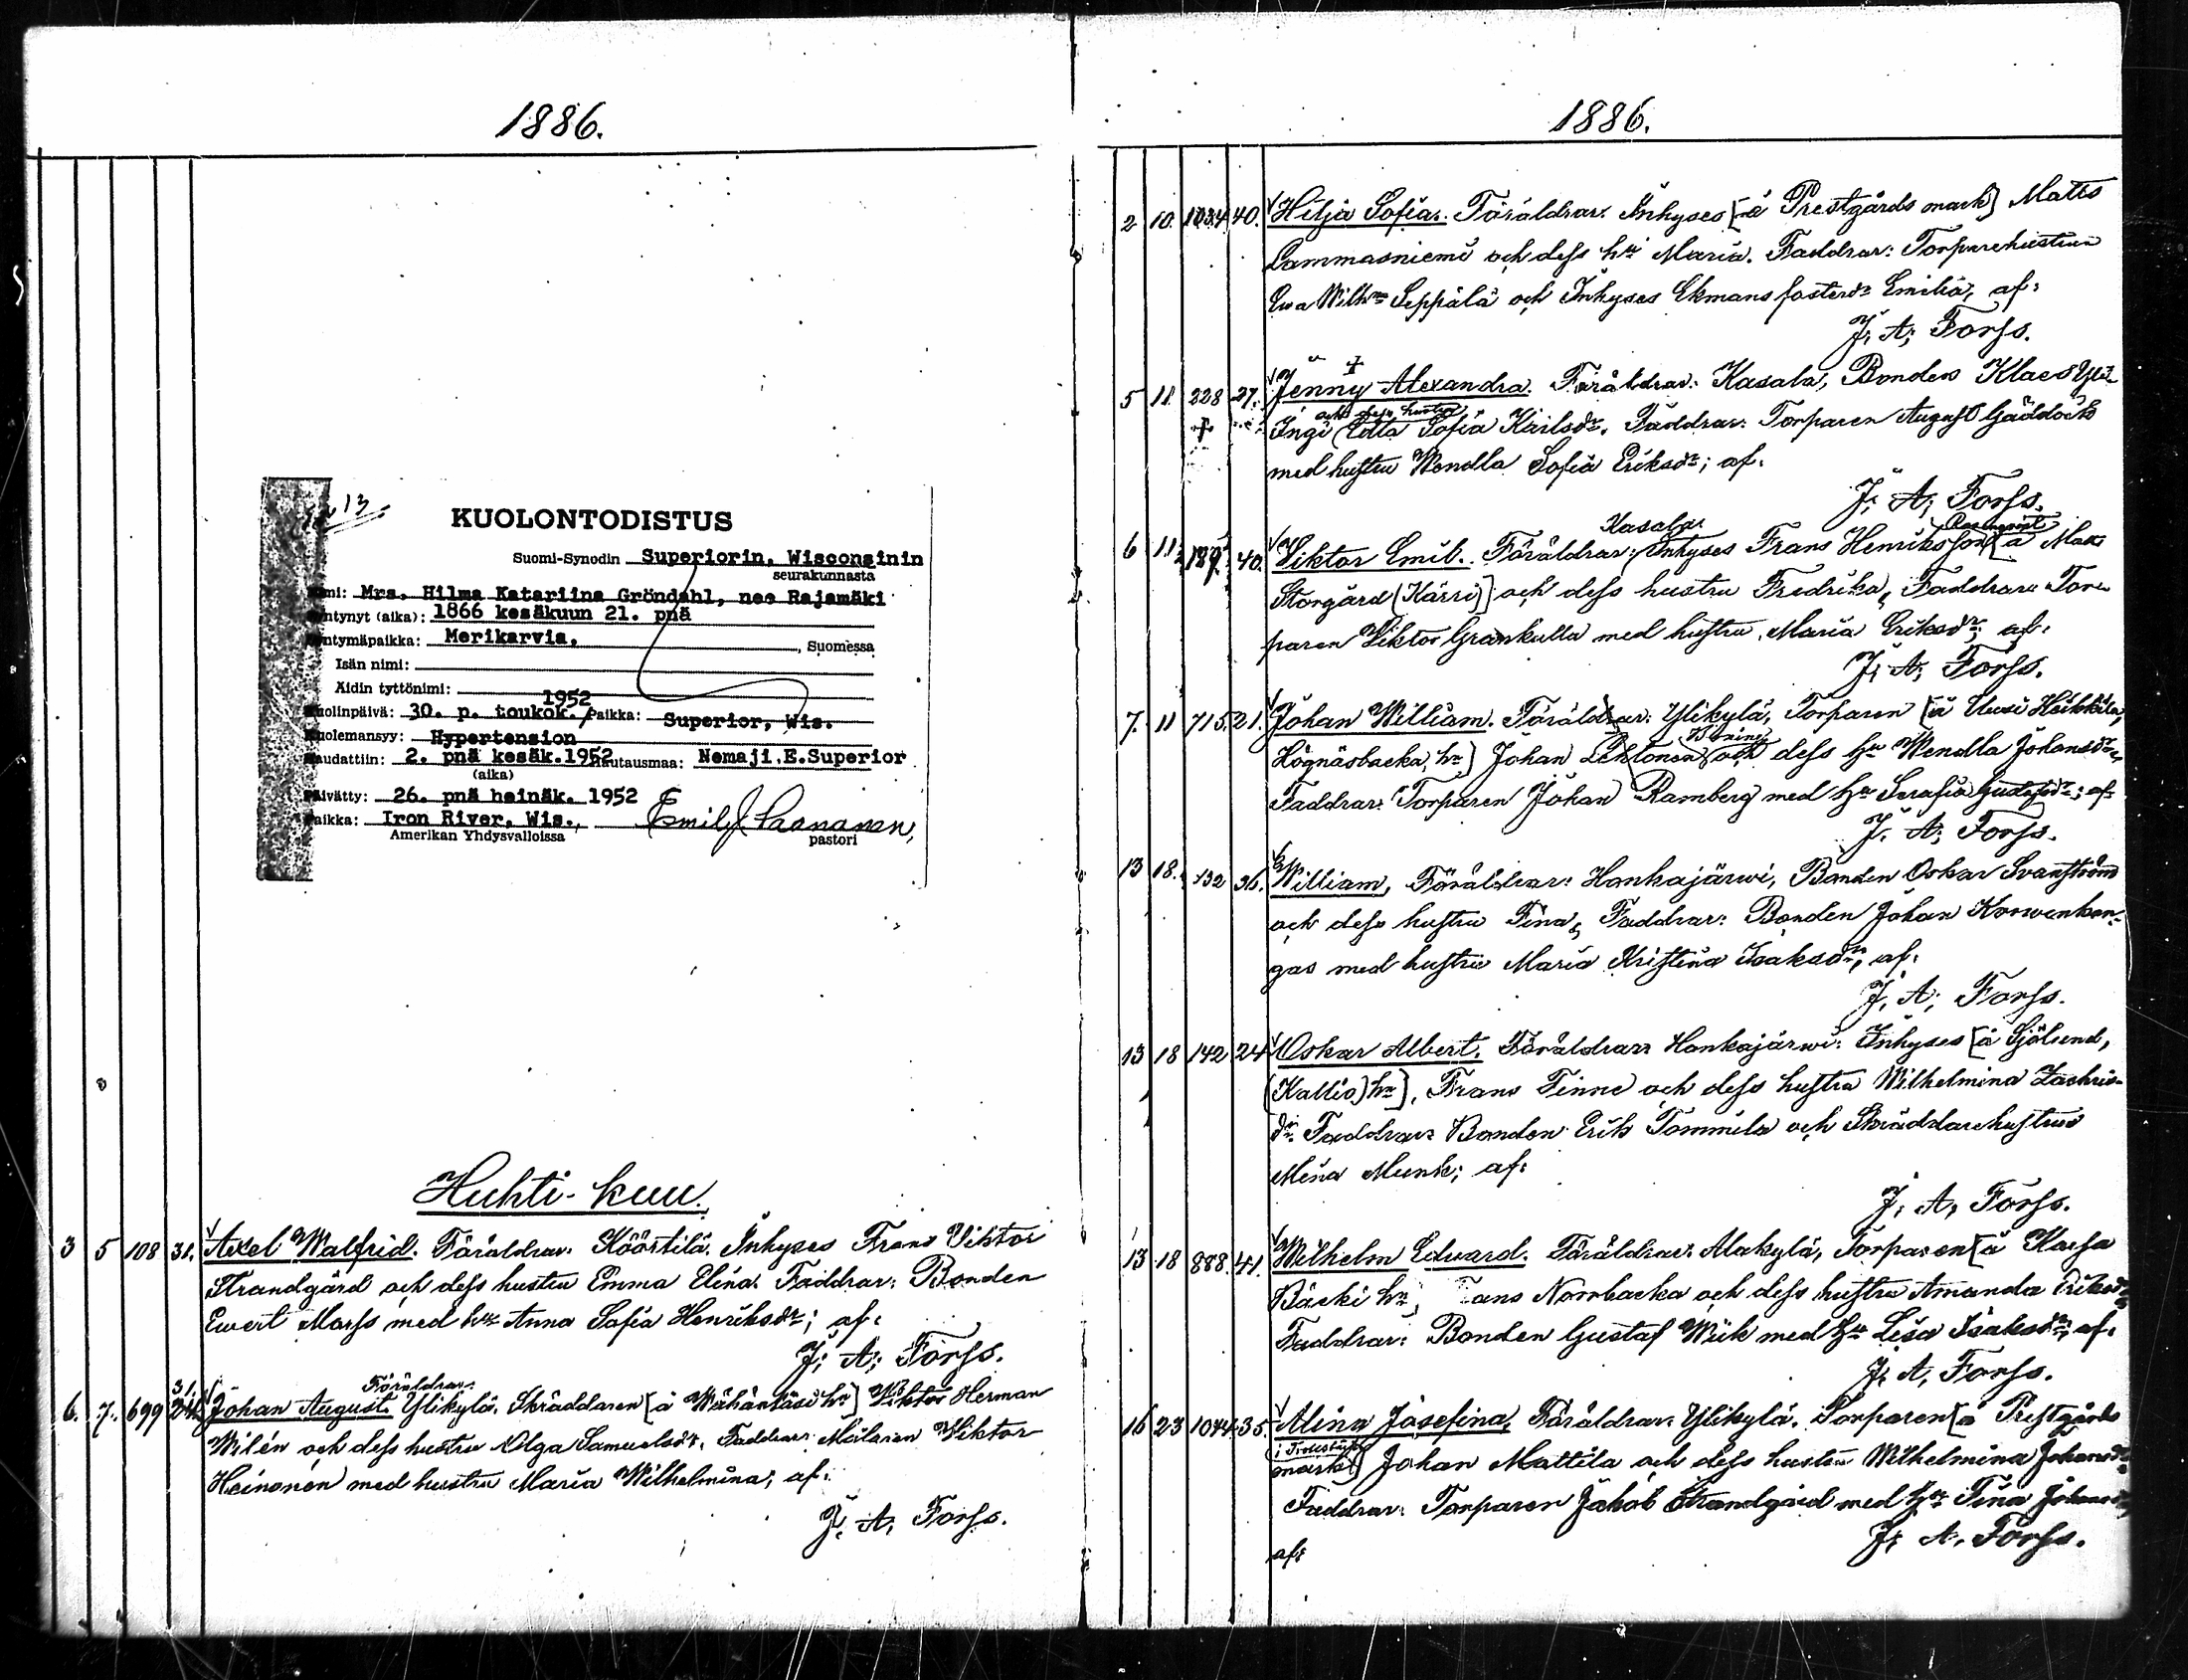 1886.
13
KUOLONTODISTUS
Suomi-Synodin Superiorin, Wisconsinin
seurakunnasta
imi: Mrs. Hilma Katariina Gröndahl, nee Rajamäki
ntynyt (aika): 1866 kesäkuun 21. pnä
ntymäpaikka: Merikarvia, , Suomessa
Isän nimi:
Äidin tyttönimi:
1952
uolinpäivä: 30. p. toukok. Paikka: Superior, Wis.
uolemansyy: Hypertension
audattiin: 2. pnä kesäk.1952 Hautausmaa: Nemaji.E.Superior
(aika)
Päivätty: 26. pnä heinäk. 1952
aikka: Iron River, Wis., Emil J. Paananen,
Amerikan Yhdysvalloissa pastori
Huhti-kuu.
3 5 108 31. Axel Walfrid. Föräldrar: Köörtilä. Inhyses Frans Viktor
Strandgård och dess hustru Emma Elina. Faddrar: Bonden
Ewert Morss med hru Anna Sofia Henriksdr; af:
J. A. Forss.
Föräldrar:
31.
6. 7. 699 24. Johan August. Ylikylä. Skräddaren [å Wähäntäsi hn] Viktor Herman
Wilén och dess hustru Olga Samuelsdr. Faddrar: Målaren Viktor
Heinonen med hustru Maria Wilhelmina; af:
J. A. Forss.
1886.
2 10. 1034 40. Hilja Sofia. Föräldrar: Inhyses [å Prestgårds mark] Matts
Lammasniemi och dess hru Maria. Faddrar: Torparehustrun
Ewa Wilhna Seppälä och Inhyses Ekmans fosterdr Emilia, af:
J. A. Forss.
5 11 228 27. Jenny Alexandra. Föräldrar: Kasala, Bonden Klaes Yli-
och dess hustru
Ingi Edla Sofia Karlsdr. Faddrar: Torparen August Gäddbäck
med hustru Wendla Sofia Eriksdr; af:
J. A. Forss.
Kasala:
6 11 187. 40. Viktor Emil. Föräldrar: Inhyses Frans Henriksson [å
Storgård (Kärri)] och dess hustru Fredrika, Faddrar: Tor-
paren Viktor Grankulla med hustru Maria Eriksdr; af:
J. A. Forss.
7. 11 715. 21. Johan William. Föräldrar: Ylikylä, Torparen [å Uusi Heikkilä,
Högnäsbacka, hn] Johan Lehtonen och dess hru Wendla Johansdr,
Faddrar: Torparen Johan Ramberg med hru Serafia Gustafsdr; af:
J. A. Forss.
13 18. 132 36. William, Föräldrar: Honkajärwi, Bonden Oskar Svanström
och dess hustru Fina, Faddrar: Bonden Johan Korwenkan-
gas med hustru Maria Kristina Isaksdr, af:
J. A. Forss.
13 18 142 24 Oskar Albert. Föräldrar: Honkajärwi: Inhyses [å Sjölund,
(Kallio) hn], Frans Finne och dess hustru Wilhelmina Zachris-
dr. Faddrar: Bonden Erik Tommila och Skräddarehustrun
Mina Munk; af:
J. A. Forss.
13 18 888. 41. Wilhelm Edvard. Föräldrar: Alakylä, Torparen [å Kaesa
Bäcki hn, Frans Norrbacka och dess hustru Amanda Eriksdr
Faddrar: Bonden Gustaf Wiik med hru Lisa Isaksdr, af:
J. A. Forss.
16 23 1044 35. Alina Josefina, Föräldrar: Ylikylä. Torparen [å Prestgårds
mark] Johan Mattila och dess hustru Wilhelmina Johansdr
Faddrar: Torparen Jakob Strandgård med hru Fina Johansdr
J. A. Forss.
af: